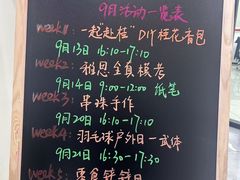 9月活动一览表
week1: 一起"赴桂"DIY桂花香包
9月13日 16:10-17:10
week2: 雅思全真模考
9月14日 9:00-12:00 纸笔
week3: 串珠手作
week4: 羽毛球户外日—武体
9月21日 16:30-17:30
week5: 零食转转日